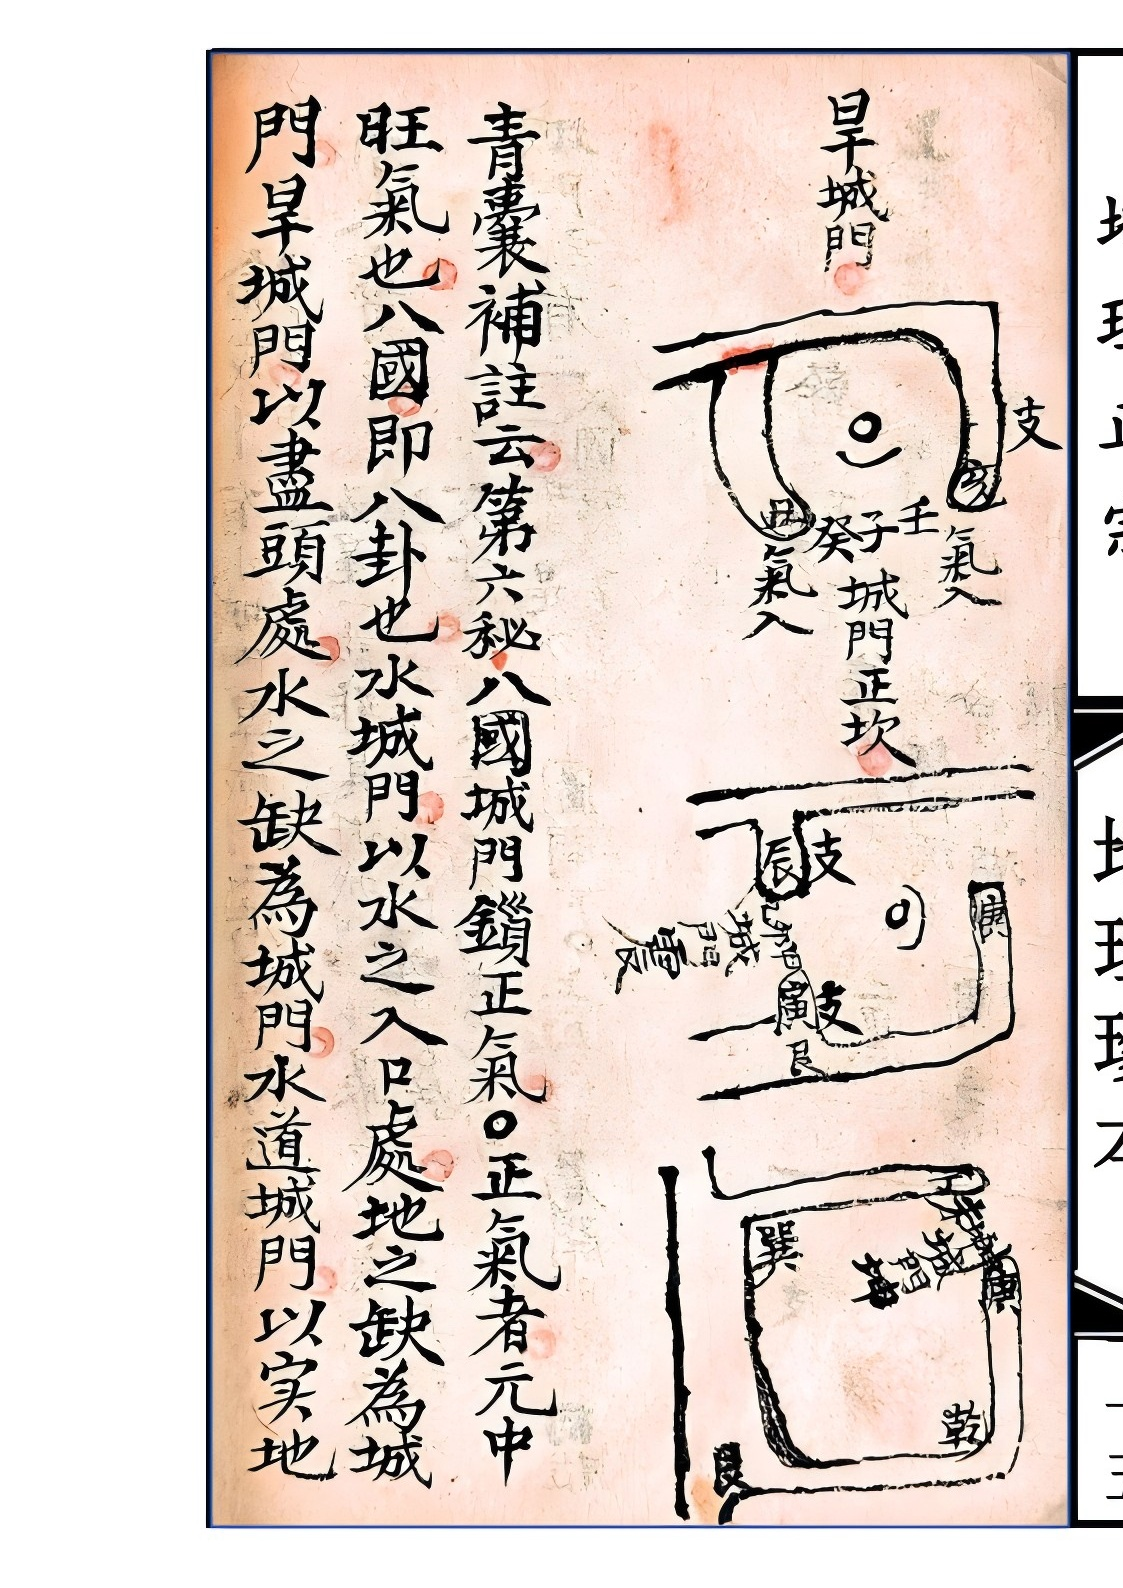 旱城門
支
亥
壬
子
癸
丑
氣入
氣入
城門正坎
辰
支
庚
城門
震
寅
支
艮
巽
城門
庚
乾
艮
青囊補註云第六秘八國城門鎖正氣○正氣者元中
旺氣也八國即八卦也水城門以水之入口處地之缺為城
門旱城門以盡頭處水之缺為城門水道城門以实地